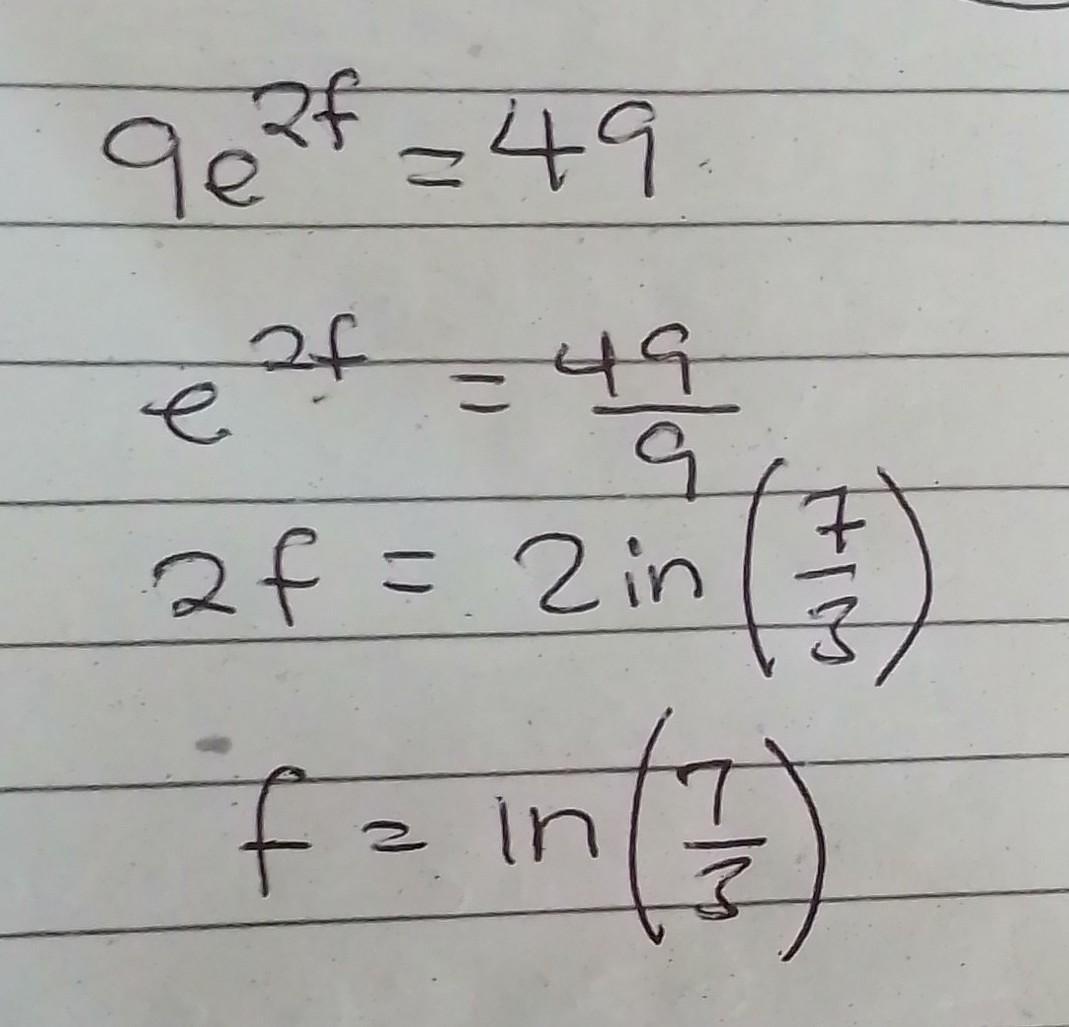 9e^{2f} = 49
e^{2f} = \frac{49}{9}
2f = 2in(\frac{7}{3})
f = in(\frac{7}{3})